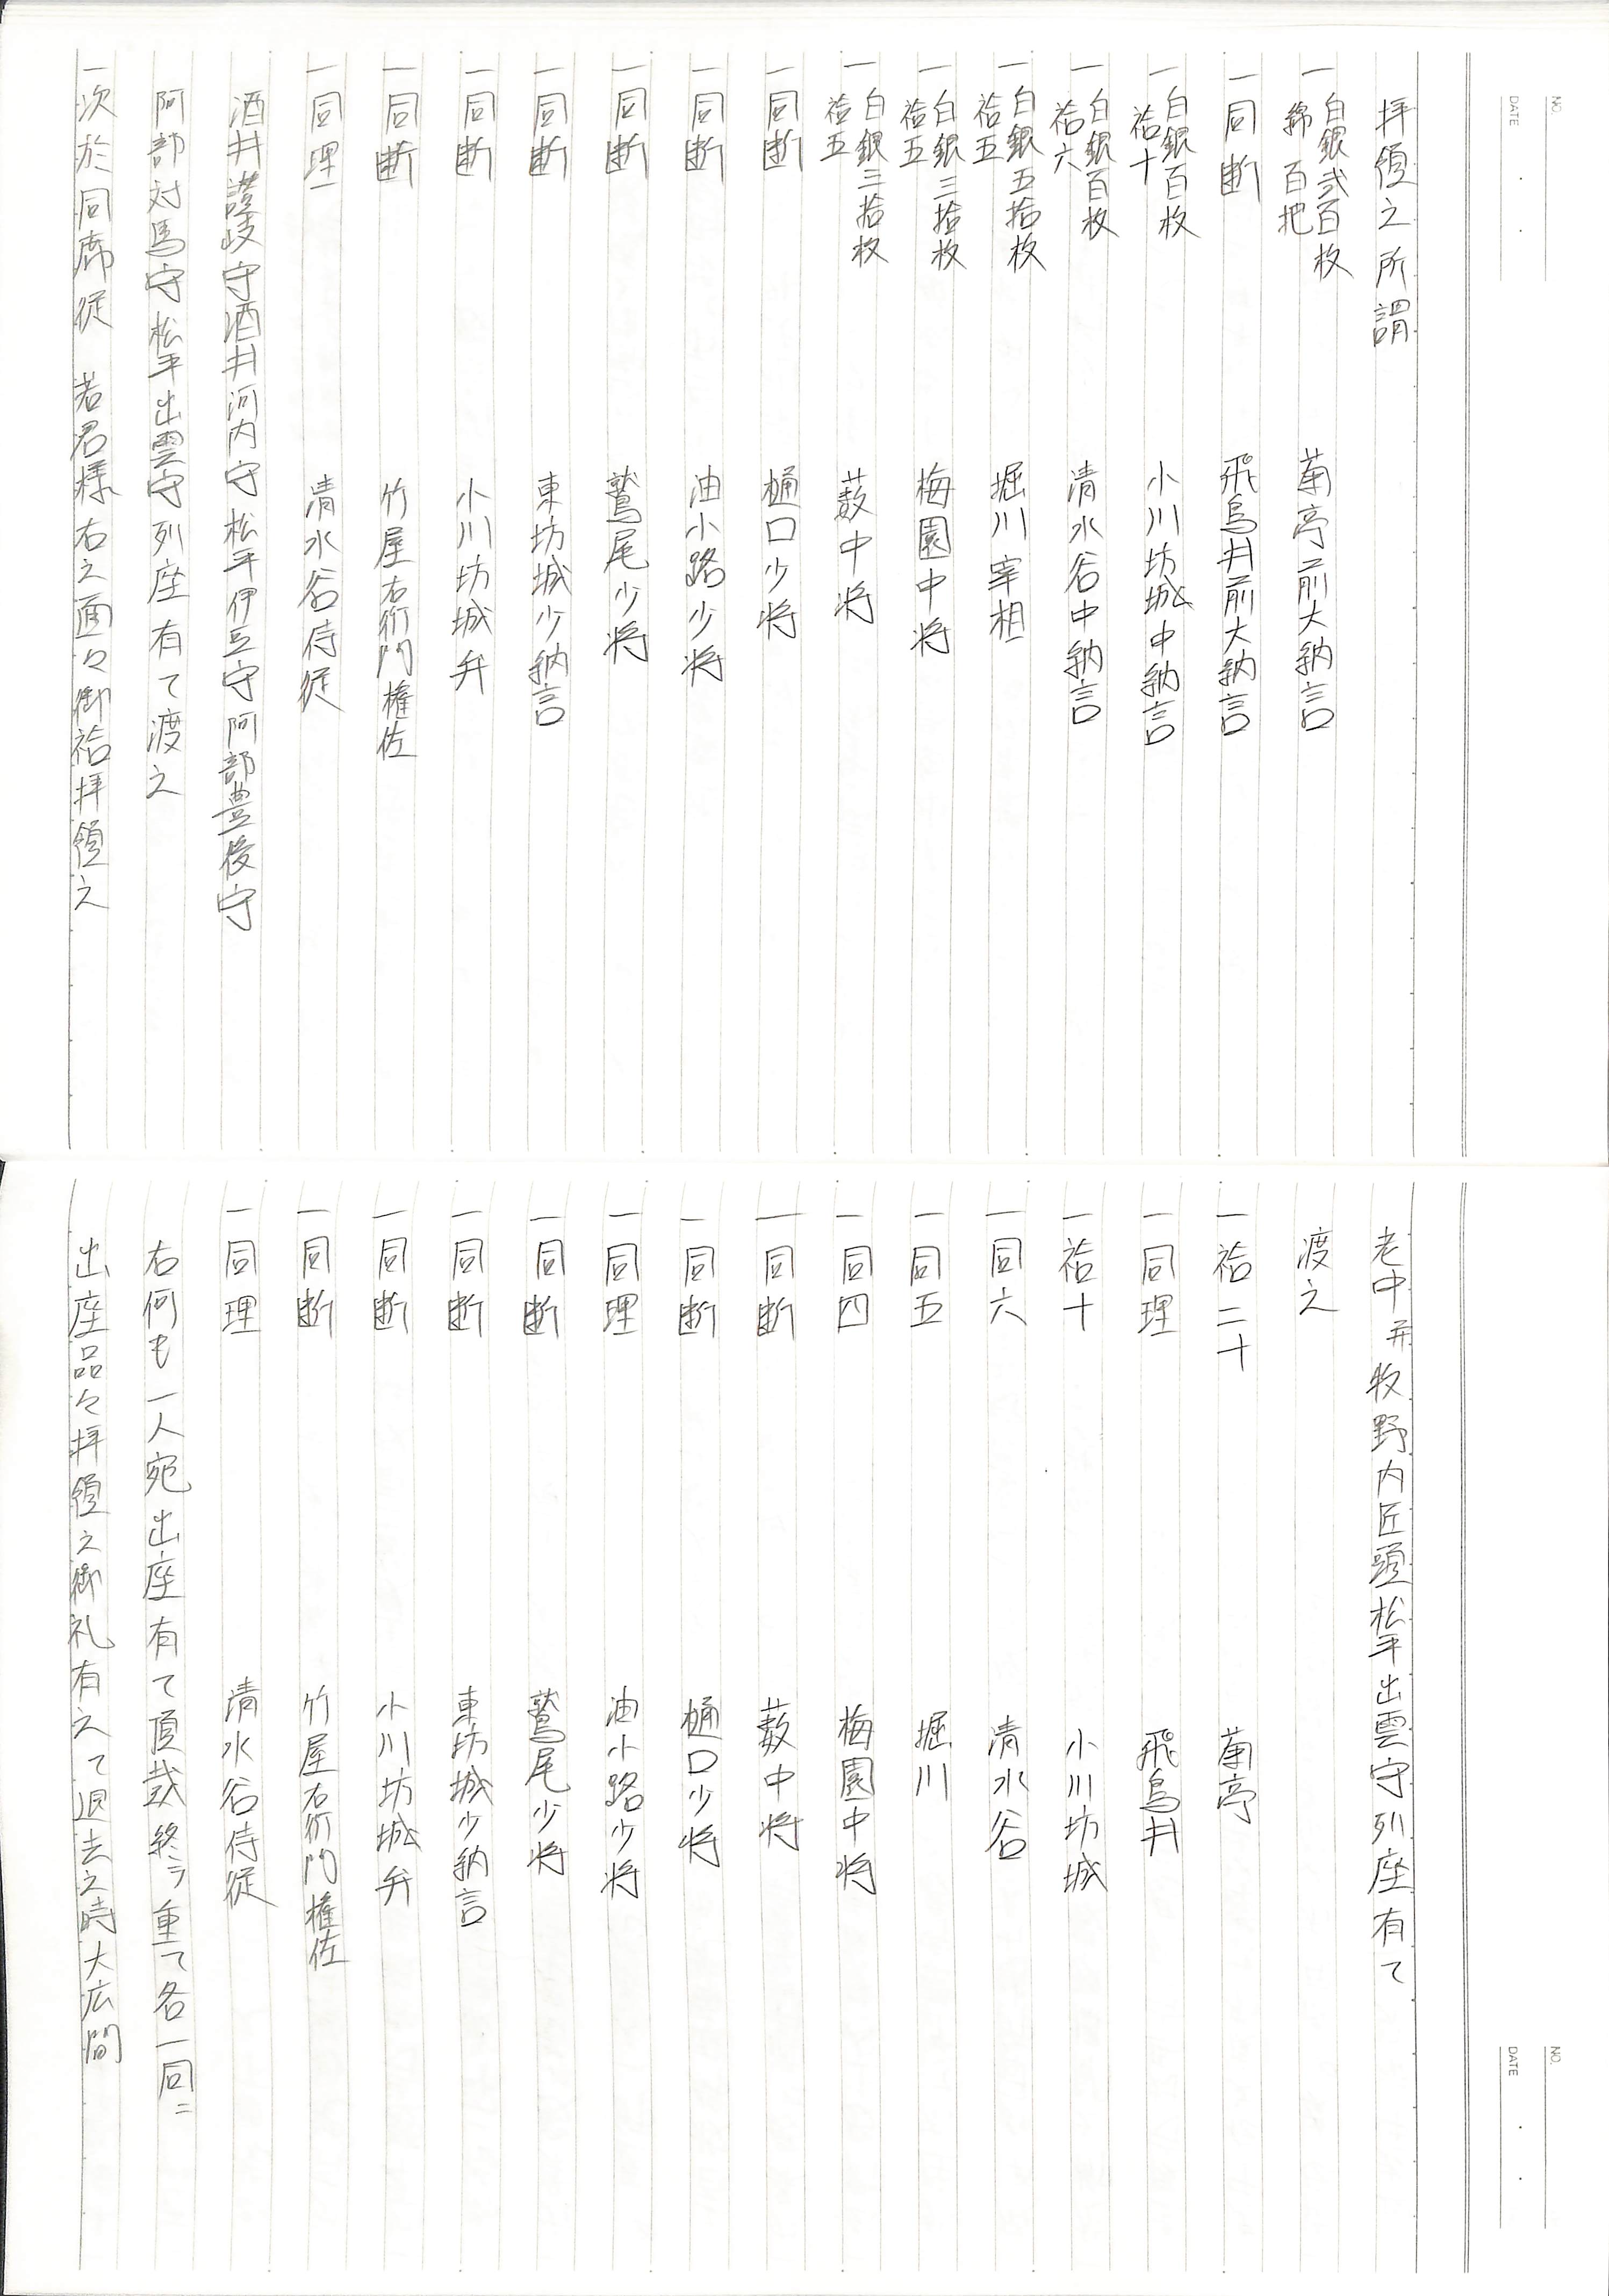 NO.
DATE
拝領之所謂
一 白銀弐百枚 綿百把 菊亭前大納言
一同断 飛鳥井前大納言
一 白銀百枚 袷十 小川坊城中納言
一 白銀百枚 袷六 清水谷中納言
一 白銀五拾枚 袷五 堀川宰相
一 白銀三拾枚 袷五 梅園中将
一 白銀三拾枚 袷五 薮中将
一同断 樋口少将
一同断 油小路少将
一同断 鷲尾少将
一同断 東坊城少納言
一同断 小川坊城弁
一同断 竹屋右衛門権佐
一同理 清水谷侍従
酒井讃岐守酒井河内守松平伊豆守阿部豊後守
阿部対馬守松平出雲守列座有て渡之
一次於同席従 若君様右之面々御袷拝領之
NO.
DATE
老中并牧野内匠頭松平出雲守列座有て
渡之
一袷二十 菊亭
一同理 飛鳥井
一袷十 小川坊城
一同六 清水谷
一同五 堀川
一同四 梅園中将
一同断 薮中将
一同断 樋口少将
一同理 油小路少将
一同断 鷲尾少将
一同断 東坊城少納言
一同断 小川坊城弁
一同断 竹屋右衛門権佐
一同理 清水谷侍従
右何も一人宛出座有て頂戴終ラ重て各一同ニ
出座品々拝領之御礼有之て退去之時大広間